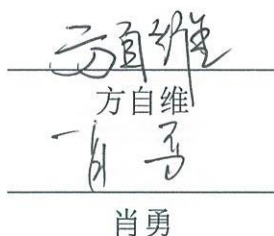 方自维
方自维
肖勇